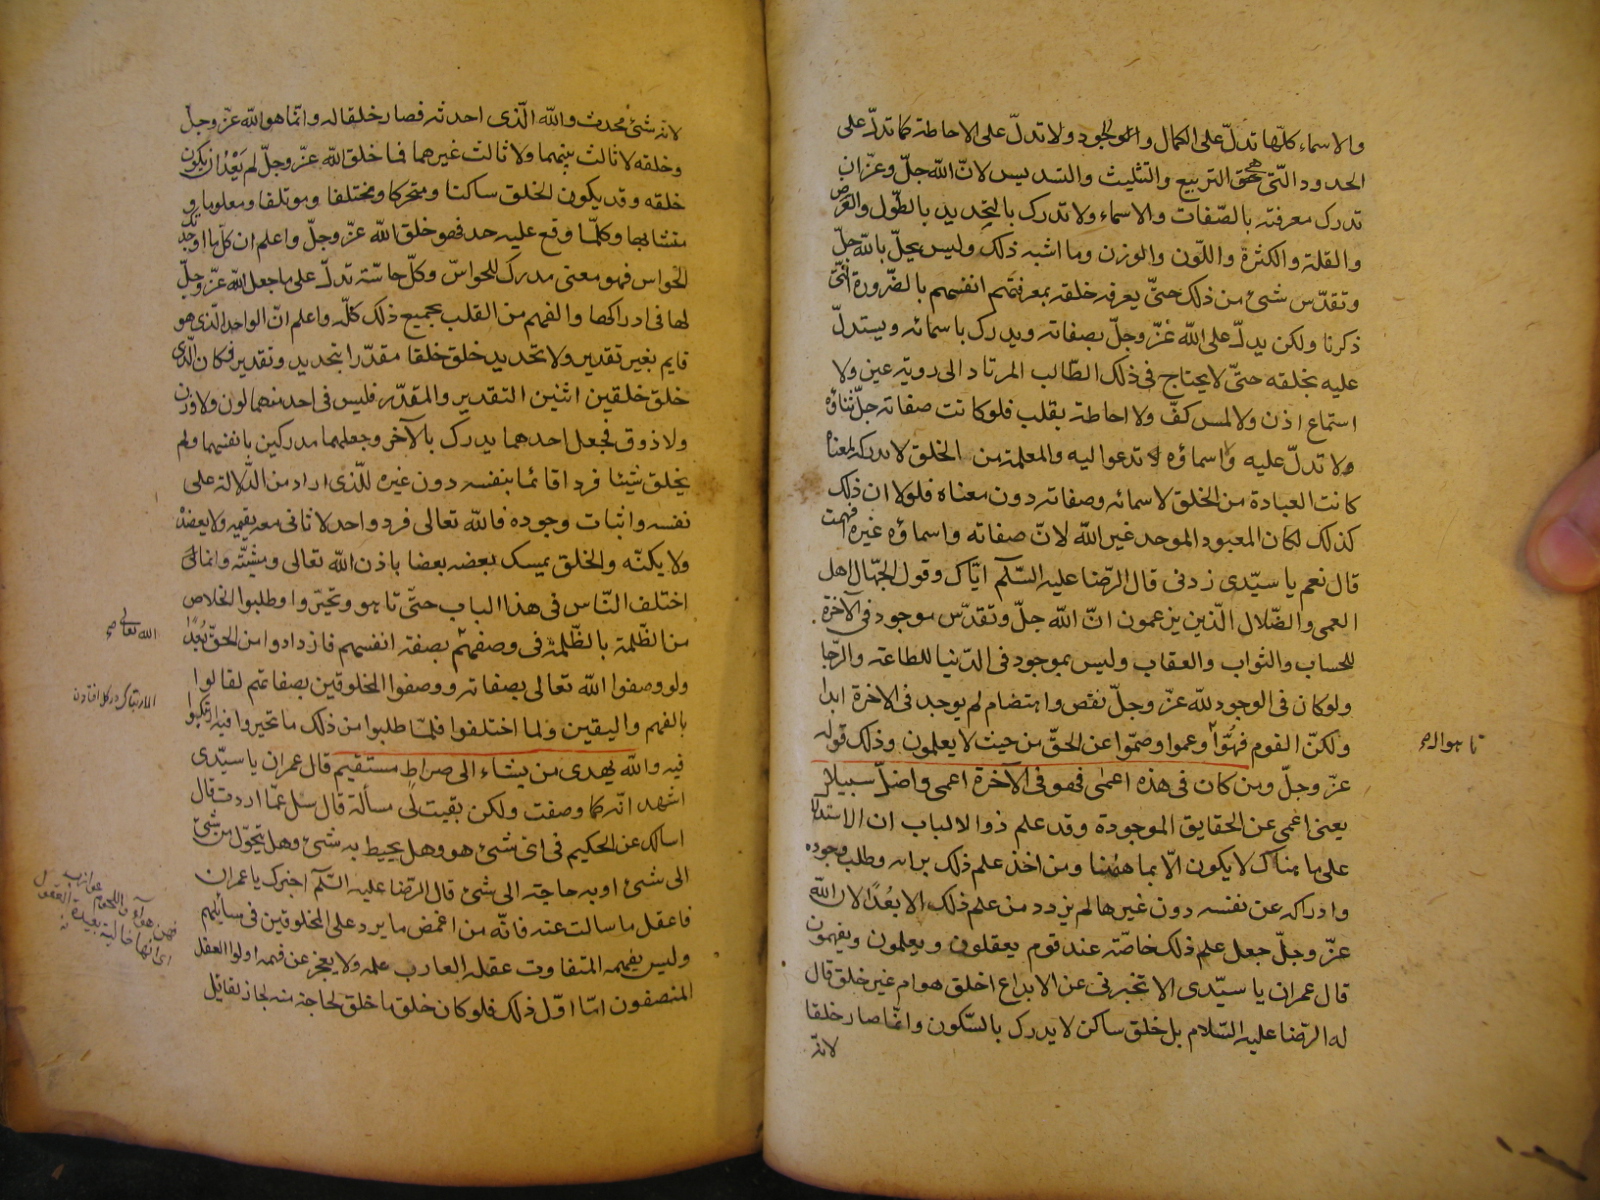 والاسماء كلّها تدلّ على الكمال والوجود ولا تدلّ على الاحاطة كما تدلّ على
الحدود الّتى هى التربيع والتثليث والتسديس لانّ الله جلّ وعزّ ان
تدرك معرفته بالصّفات والاسماء ولا تدرك بالتحديد بالطّول والعرض
والقلة والكثرة واللّون والوزن وما اشبه ذلك وليس يحلّ بالله جلّ
وتقدّس شئ من ذلك حتىّ يعرفه خلقه بمعرفتهم انفسهم بالضّرورة الّتى
ذكرنا ولكن يدلّ على الله عزّ وجلّ بصفاته ويدرك باسمائه ويستدلّ
عليه بخلقه حتىّ لا يحتاج فى ذلك الطّالب المرتاد الى روية عين ولا
استماع اذن ولا لمس كفّ ولا احاطة بقلب فلو كانت صفاته جلّ ثناؤه
ولا تدلّ عليه واسماؤه لا تدعوا ليه والمعلمة من الخلق لا تدركه لمعناه
كانت العبادة من الخلق لاسمائه وصفاته دون معناه فلولا ان ذلك
كذلك لكان المعبود الموحد غير الله لانّ صفاته واسماؤه غيره افهمت
قال نعم يا سيّدى زدنى قال الرّضا عليه السّلم ايّاك وقول الجهّال اهل
العمى والضّلال الّذين يزعمون انّ الله جلّ وتقدّس موجود فى الآخرة
للحساب والثواب والعقاب وليس بموجود فى الدّنيا للطاعة والرّجا
ولو كان فى الوجود لله عزّ وجلّ نقص واهتضام لم يوجد فى الاخرة ابدا
ولكنّ القوم فهُوّا وعموا وصمّوا عن الحقّ من حيث لا يعلمون وذلك قوله
تاهوا
عزّ وجلّ ومن كان فى هذه اعمى فهو فى الآخرة اعمى واضلّ سبيلا
يعنى اعمى عن الحقايق الموجودة وقد علم ذوا الالباب ان الاستدلال
على ما هناك لا يكون الّا بما ههنا ومن اخذ علم ذلك برايه وطلب وجوده
وادراكه عن نفسه دون غيرها لم يزدد من علم ذلك الا بعُدًا لان الله
عزّ وجلّ جعل علم ذلك خاصّة عند قوم يعقلون ويعلمون ويفهمون
قال عمران يا سيّدى الا تخبرنى عن الابداع اخلق هو ام غير خلق قال
له الرّضا عليه السّلام بل خلق ساكن لا يدرك بالسّكون وانّما صار خلقا
لانّه
لانه شئ محدث والله الّذى احدثه فصار خلقا له وانّما هو الله عزّ وجلّ
وخلقه لا ثالث بينهما ولا ثالث غيرهما فما خلق الله عزّ وجلّ لم يَعْدُ ان يكون
خلقه وقد يكون الخلق ساكنا ومتحركا ومختلفا وموتلفا ومعلوما و
متشابها وكلّما وقع عليه حد فهو خلق الله عزّ وجلّ واعلم ان كلّ ما اوجدتك
الحواس فهو معنى مدرك للحواسّ وكلّ حاسّة تدلّ على ما جعل الله عزّ وجلّ
لها فى ادراكها والفهم من القلب بجميع ذلك كلّه واعلم انّ الواحد الّذى هو
قايم بغير تقدير ولا تحديد خلق خلقا مقدّرا بتحديد وتقدير فكان الّذى
خلق خلقين اثنين التقدير والمقدّر فليس فى احد منهما لون ولا وزن
ولا ذوق فجعل احدهما يدرك بالآخر وجعلهما مدركين بانفسهما ولم
يخلق شيئا فردا قائما بنفسه دون غيره للّذى اراد من الدّلالة على
نفسه واثبات وجوده فالله تعالى فرد واحد لا ثانى معه يقيمه ولا يعضده
ولا يكنّه والخلق يمسك بعضه بعضا باذن الله تعالى ومشيّته وانما
اختلف النّاس فى هذا الباب حتّى تاهو وتحيّروا وطلبوا الخلاص
من الظّلمة بالظّلمة فى وصفهم بصفة انفسهم فازدادوا من الحقّ بُعْدًا
الله تعالى صح
ولو وصفوا الله تعالى بصفاته ووصفوا المخلوقين بصفاتهم لقالوا
الارتباك در كل افتادن
بالفهم واليقين ولما اختلفوا فلمّا طلبوا من ذلك ما تحيروا فيه ارتبكوا
فيه والله يهدى من يشاء الى صراط مستقيم قال عمران يا سيّدى
اشهد انّه كما وصفت ولكن بقيت لى مسألة قال سل عمّا اردت قال
اسالك عن الحكيم فى اىّ شئ هو وهل يحيط به شئ وهل يتحوّل من شئ
الى شئ او به حاجة الى شئ قال الرّضا عليه السّلم اخبرك يا عمران
فاعقل ما سالت عنه فانّه من اغمض ما يرد على المخلوقين فى مسايلهم
وليس يفهمه المتفاوت عقله العازب علمه ولا يعجز عن فهمه اولوا العقل
المنصفون امّا اوّل ذلك فلو كان خلق ما خلق لحاجة منه لجاز لقائل
اى انها خالية بعيدة